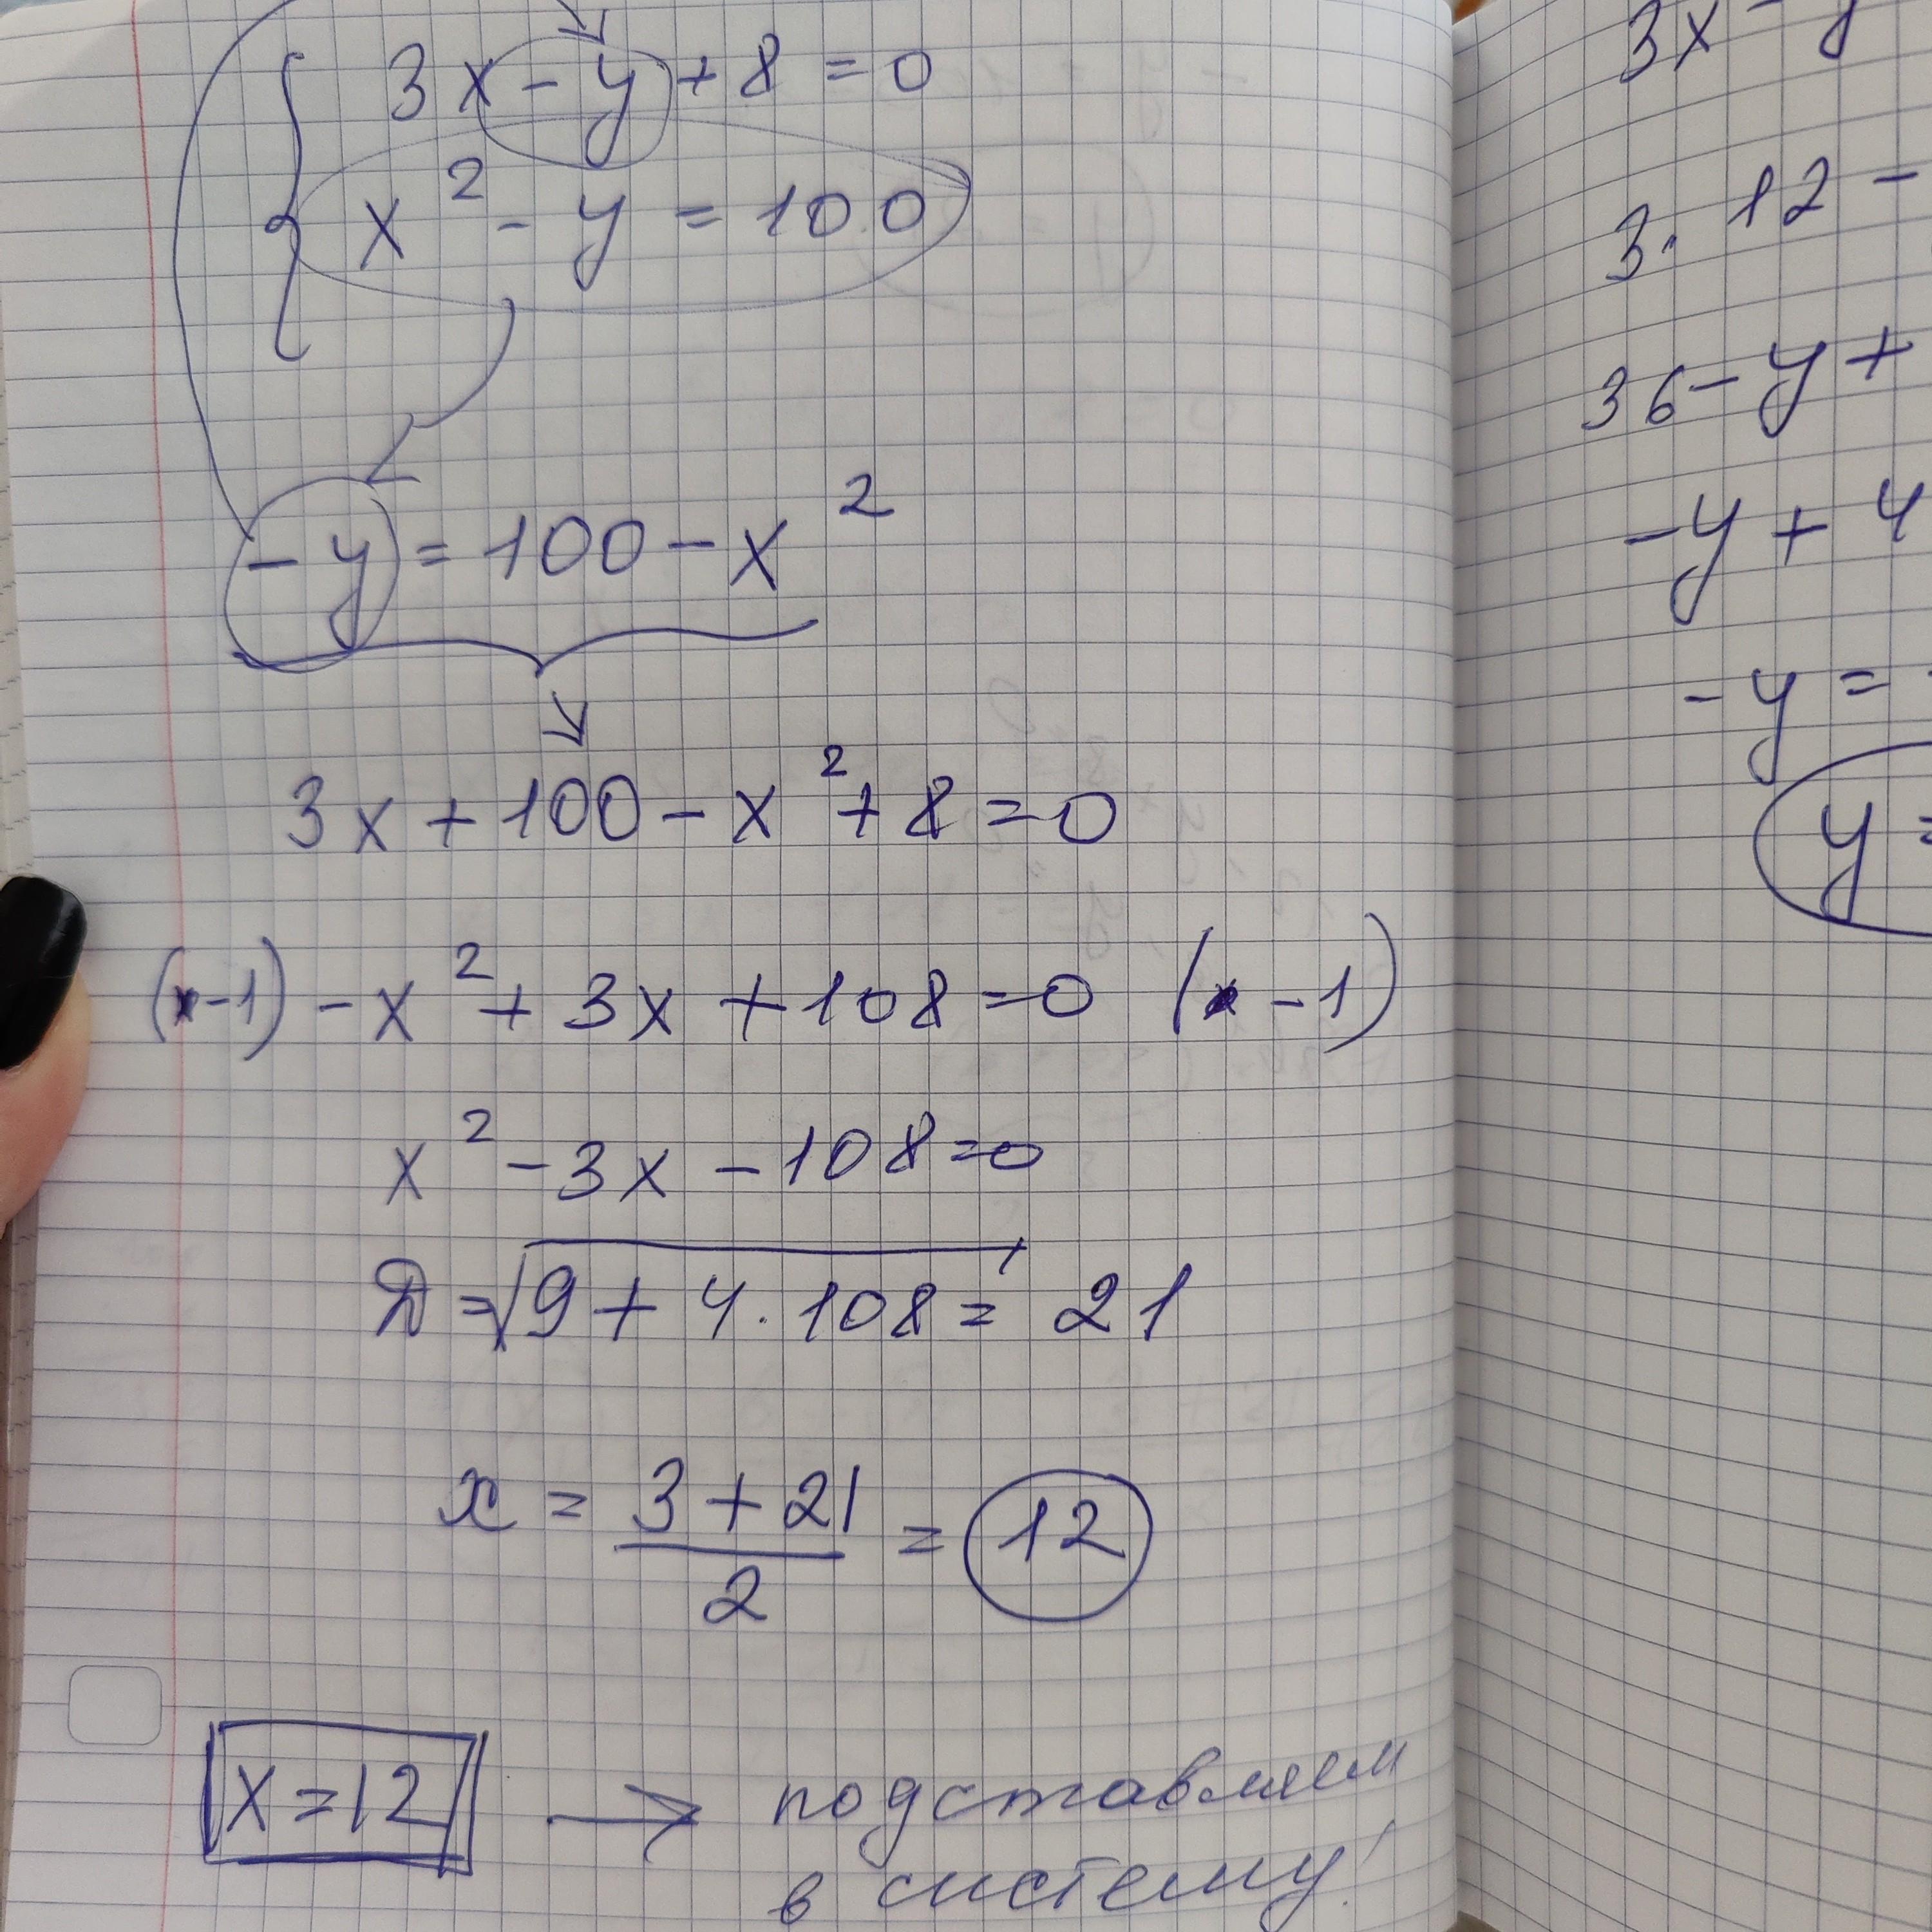 3x - y + 8 = 0
x² - y = 100
- y = 100 - x²
3x + 100 - x² + 8 = 0
(x -1) - x² + 3x + 108 = 0 (x -1)
x² - 3x - 108 = 0
D = √9 + 4 · 108 = 21
x = 3 + 21 / 2 = 12
x = 12 → подставляем
в систему!
3x - y
3 · 12 -
36 - y +
-y + 4
- y =
y =